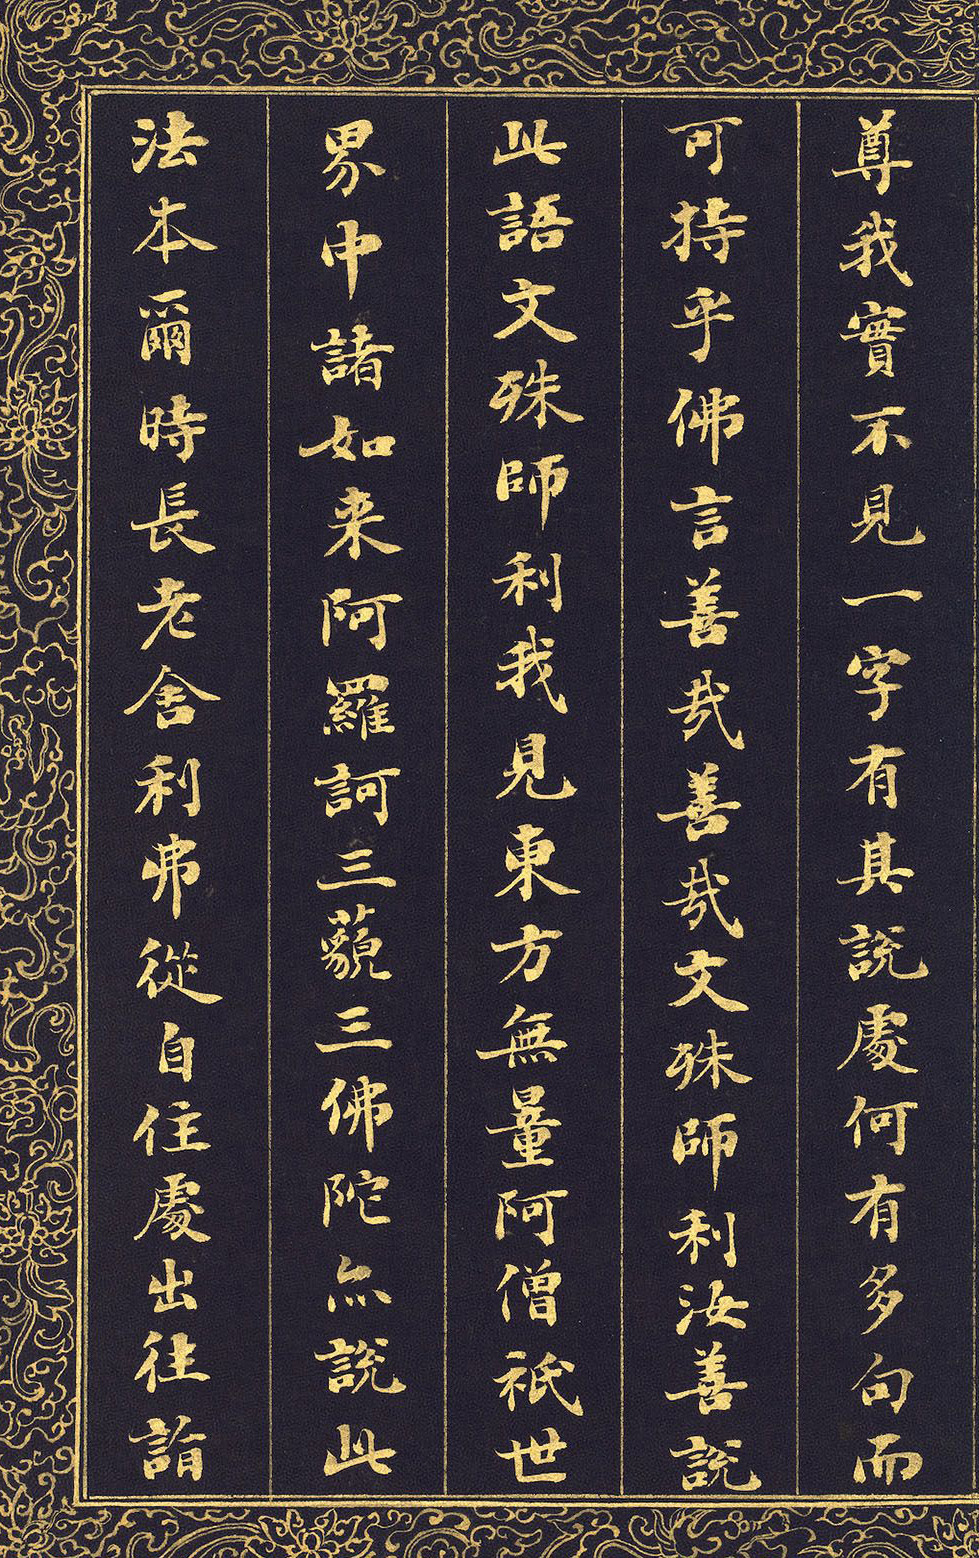 尊我實不見一字有具說處何有多句而
可持乎佛言善哉善哉文殊師利汝善說
此語文殊師利我見東方無量阿僧祇世
界中諸如来阿羅訶三藐三佛陀亦說此
法本爾時長老舍利弗從自住處出往詣